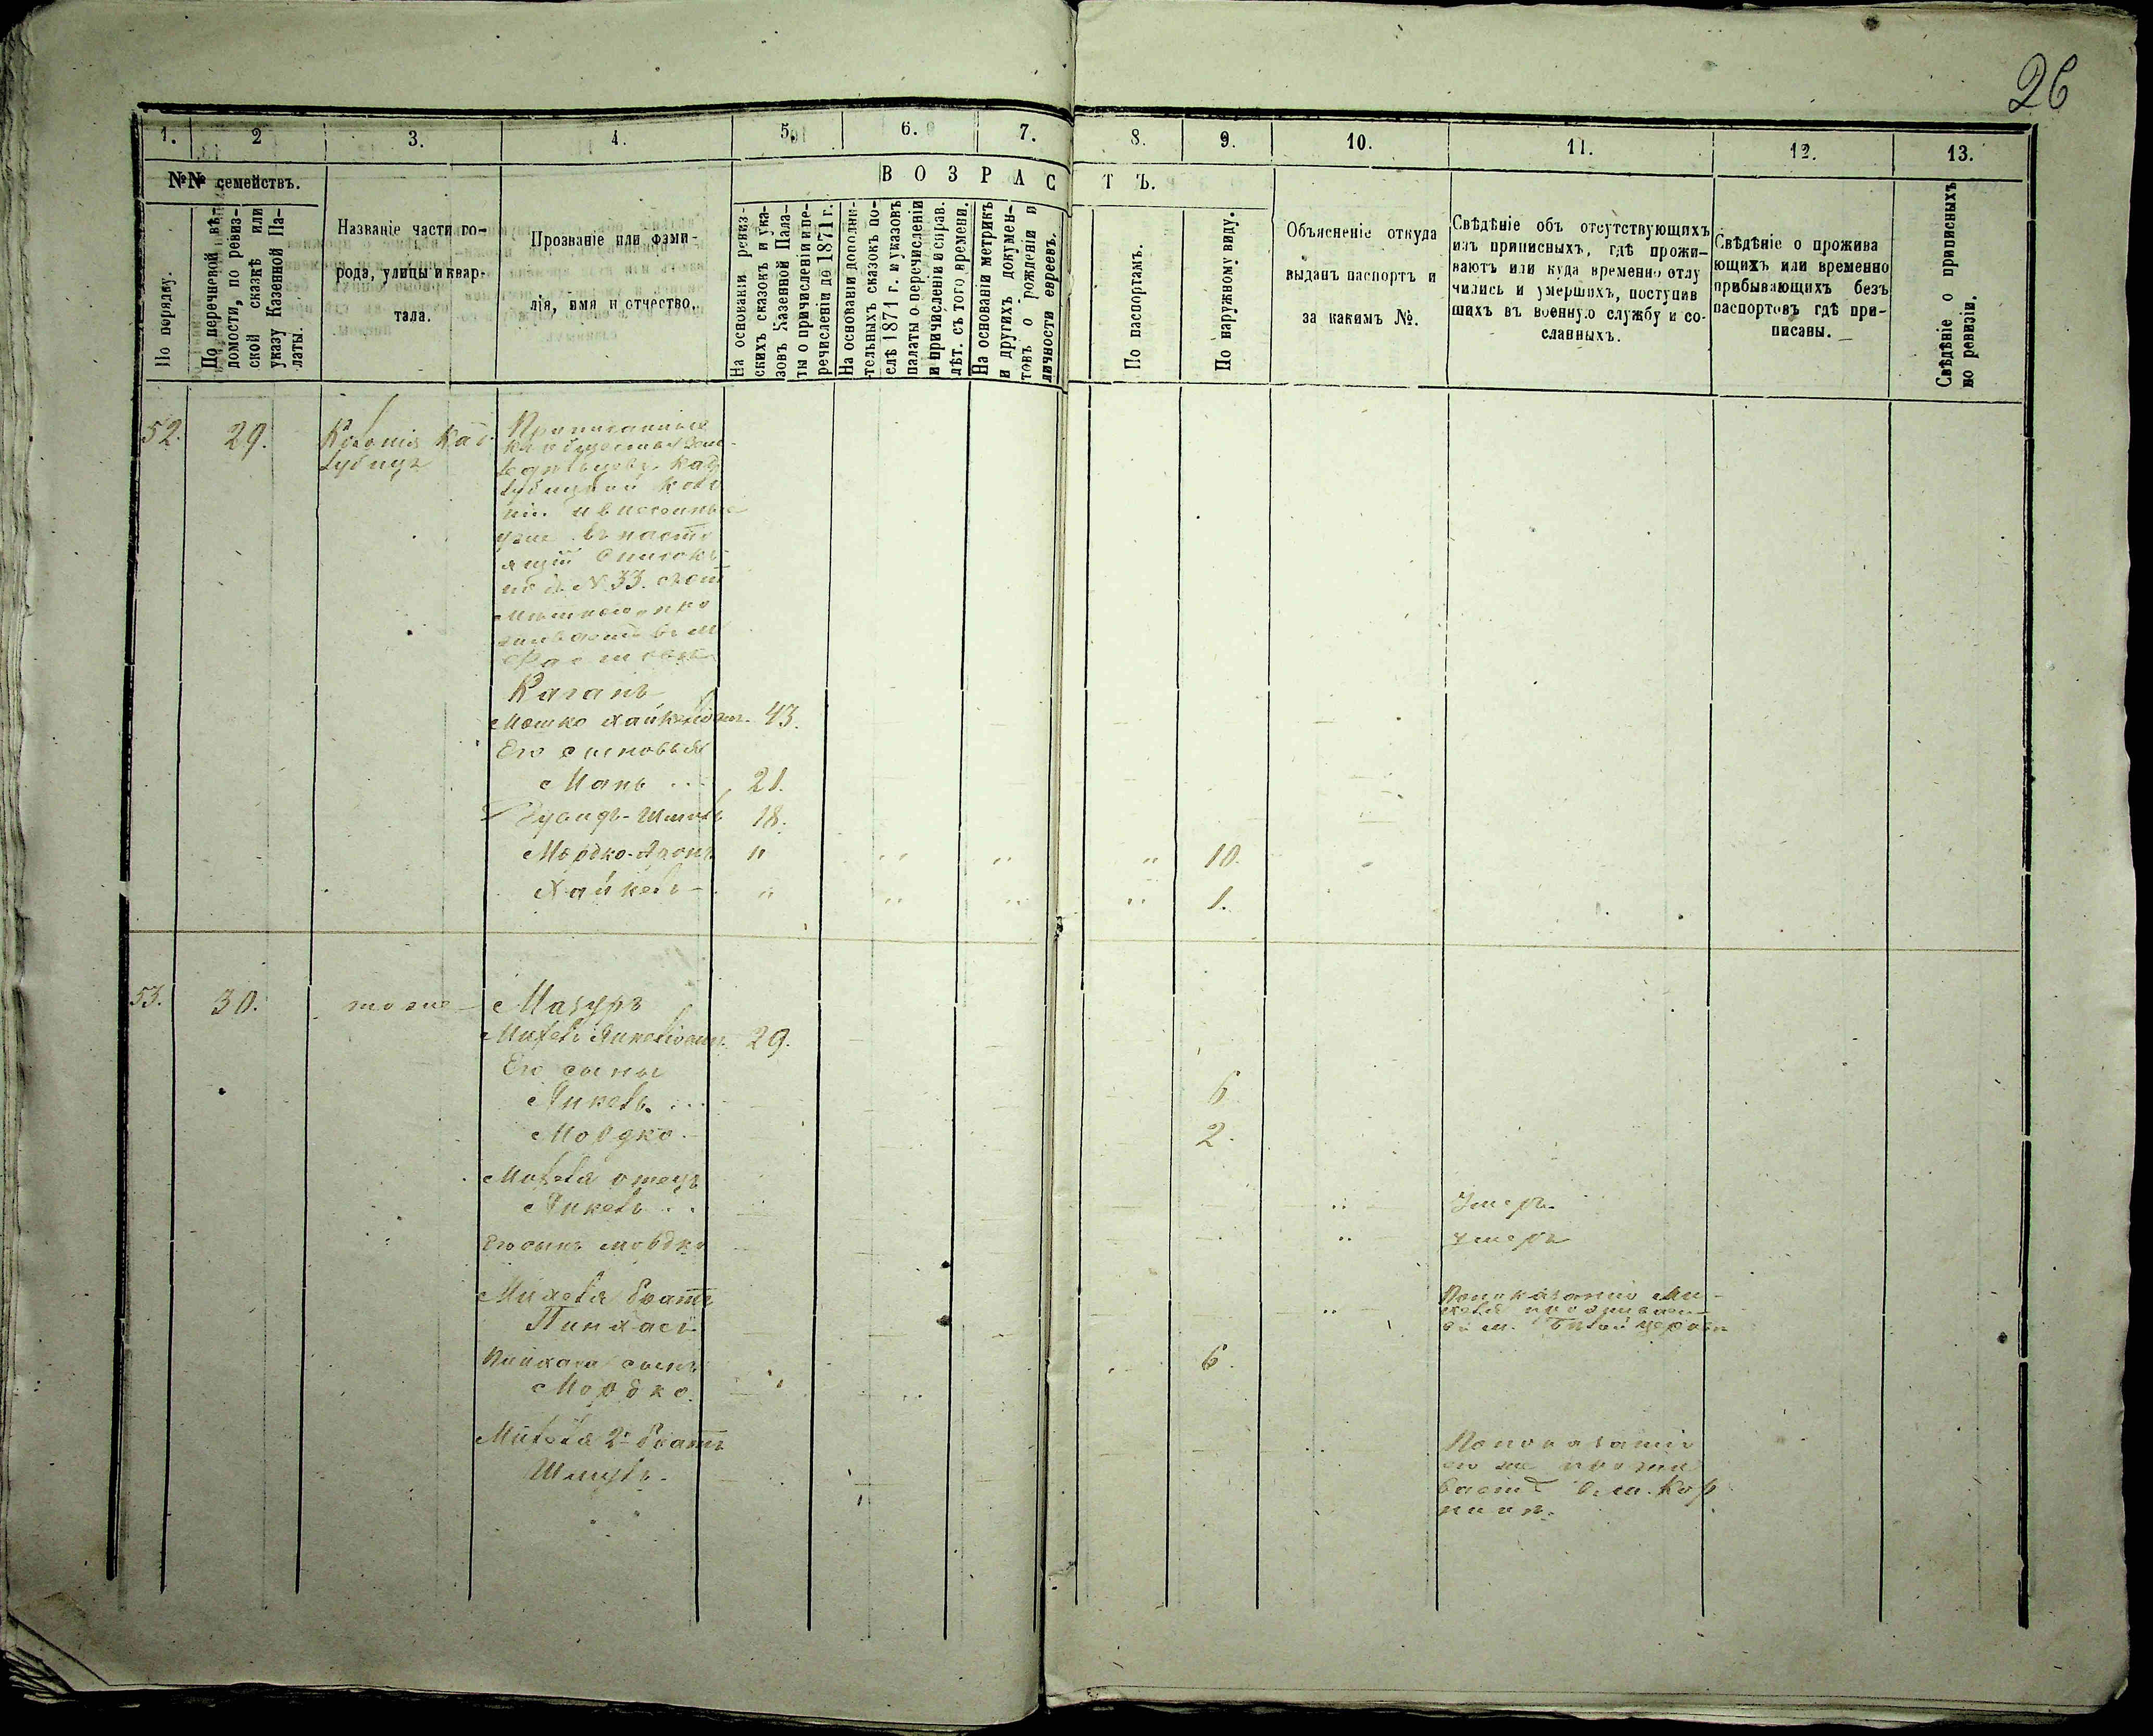 26
1. 2 3. 4. 5. 6. 7. 8. 9. 10. 11. 12. 13.
№№ семействъ.
В О З Р А С Т Ъ.
По порядку.
По перечневой вѣ-
домости, по ревиз-
ской сказкѣ или
указу Казенной Па-
латы.
Названіе части го-
рода, улицы и квар-
тала.
Прозваніе или фами-
лія, имя и отчество.
На основаніи ревиз-
скихъ сказокъ и ука-
зовъ Казенной Пала-
ты о причисленіи и пе-
речисленіи до 1871 г.
На основаніи дополни-
тельныхъ сказокъ по-
слѣ 1871 г. и указовъ
палаты о перечисленіи
и причисленіи и справ.
лѣт. съ того времени.
На основаніи метрикъ
и другихъ докумен-
товъ о рожденіи и
личности евреевъ.
По паспортамъ.
По наружному виду.
Объясненіе откуда
выданъ паспортъ и
за какимъ №.
Свѣдѣніе объ отсутствующихъ
изъ приписныхъ, гдѣ прожи-
ваютъ или куда временно отлу
чились и умершихъ, поступив
шихъ въ военную службу и со-
сланныхъ.
Свѣдѣніе о прожива
ющихъ или временно
прибывающихъ безъ
паспортовъ гдѣ при-
писаны.
Свѣдѣніе о приписныхъ
по ревизіи.
52. 29. Колонія Кад-
лубица
Приписанные
къ обществу
Кад
лубицкой коло
ніи и внесенные
уже въ насто
ящій списокъ
подъ № 33.
Каганъ
Мошко Хайкелевичъ 43.
Его сыновья
Манъ ... 21.
18.
Мордко-Аронъ " " " " 10.
Хайкель " " " " 1.
53. 30. тоже Мазуръ
Михель Янкелевичъ 29.
Его сыны
Янкель ... 6
Мордко 2.
Михеля отецъ
Янкель .. Умеръ.
Его сынъ Мордко умеръ
Михеля братъ
Пинхасъ
По показанію Ми-
хеля проживает
въ м. Бѣлой церкви
Пинхаса сынъ 6.
Мордко
Михеля 2й братъ
Шмуль
По показанію
его же прожи
ваетъ въ м. Кор
нинѣ.